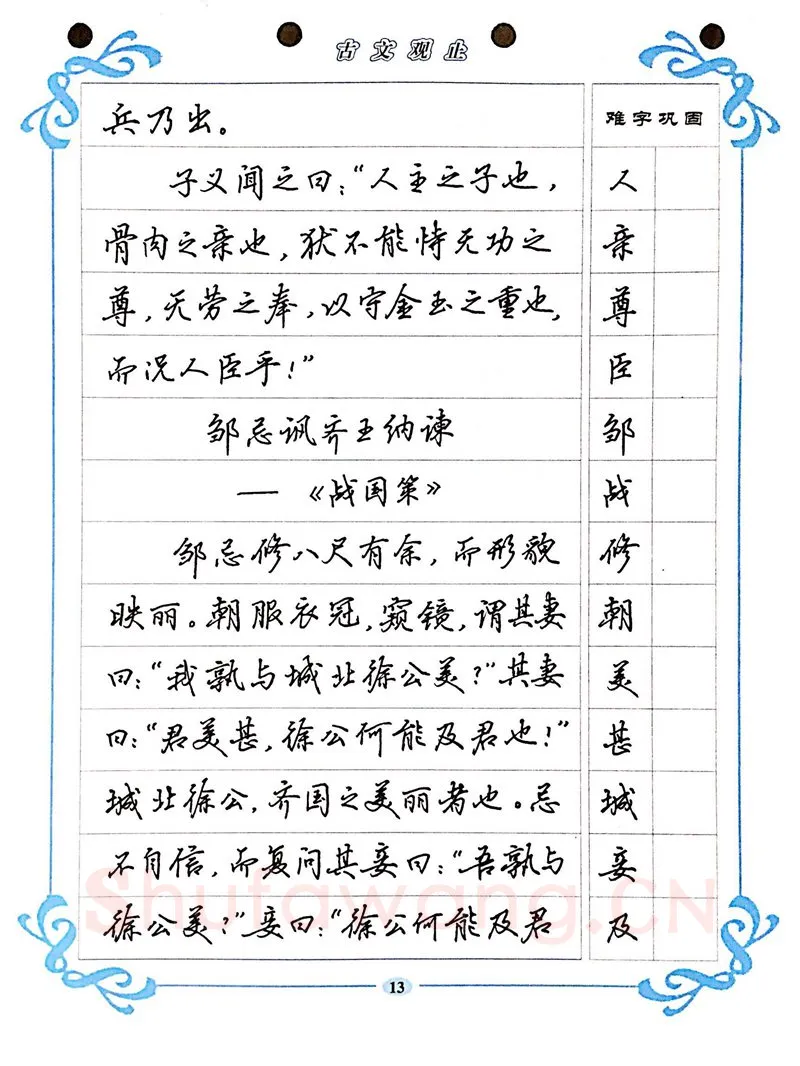 古文观止
兵乃出。
子义闻之曰：“人主之子也，
骨肉之亲也，犹不能恃无功之
尊，无劳之奉，以守金玉之重也，
而况人臣乎！”
邹忌讽齐王纳谏
——《战国策》
邹忌修八尺有余，而形貌
昳丽。朝服衣冠，窥镜，谓其妻
曰：“我孰与城北徐公美？”其妻
曰：“君美甚，徐公何能及君也！”
城北徐公，齐国之美丽者也。忌
不自信，而复问其妾曰：“吾孰与
徐公美？”妾曰：“徐公何能及君
难字巩固
人
亲
尊
臣
邹
战
修
朝
美
甚
城
妾
及
Shufawang.CN
13